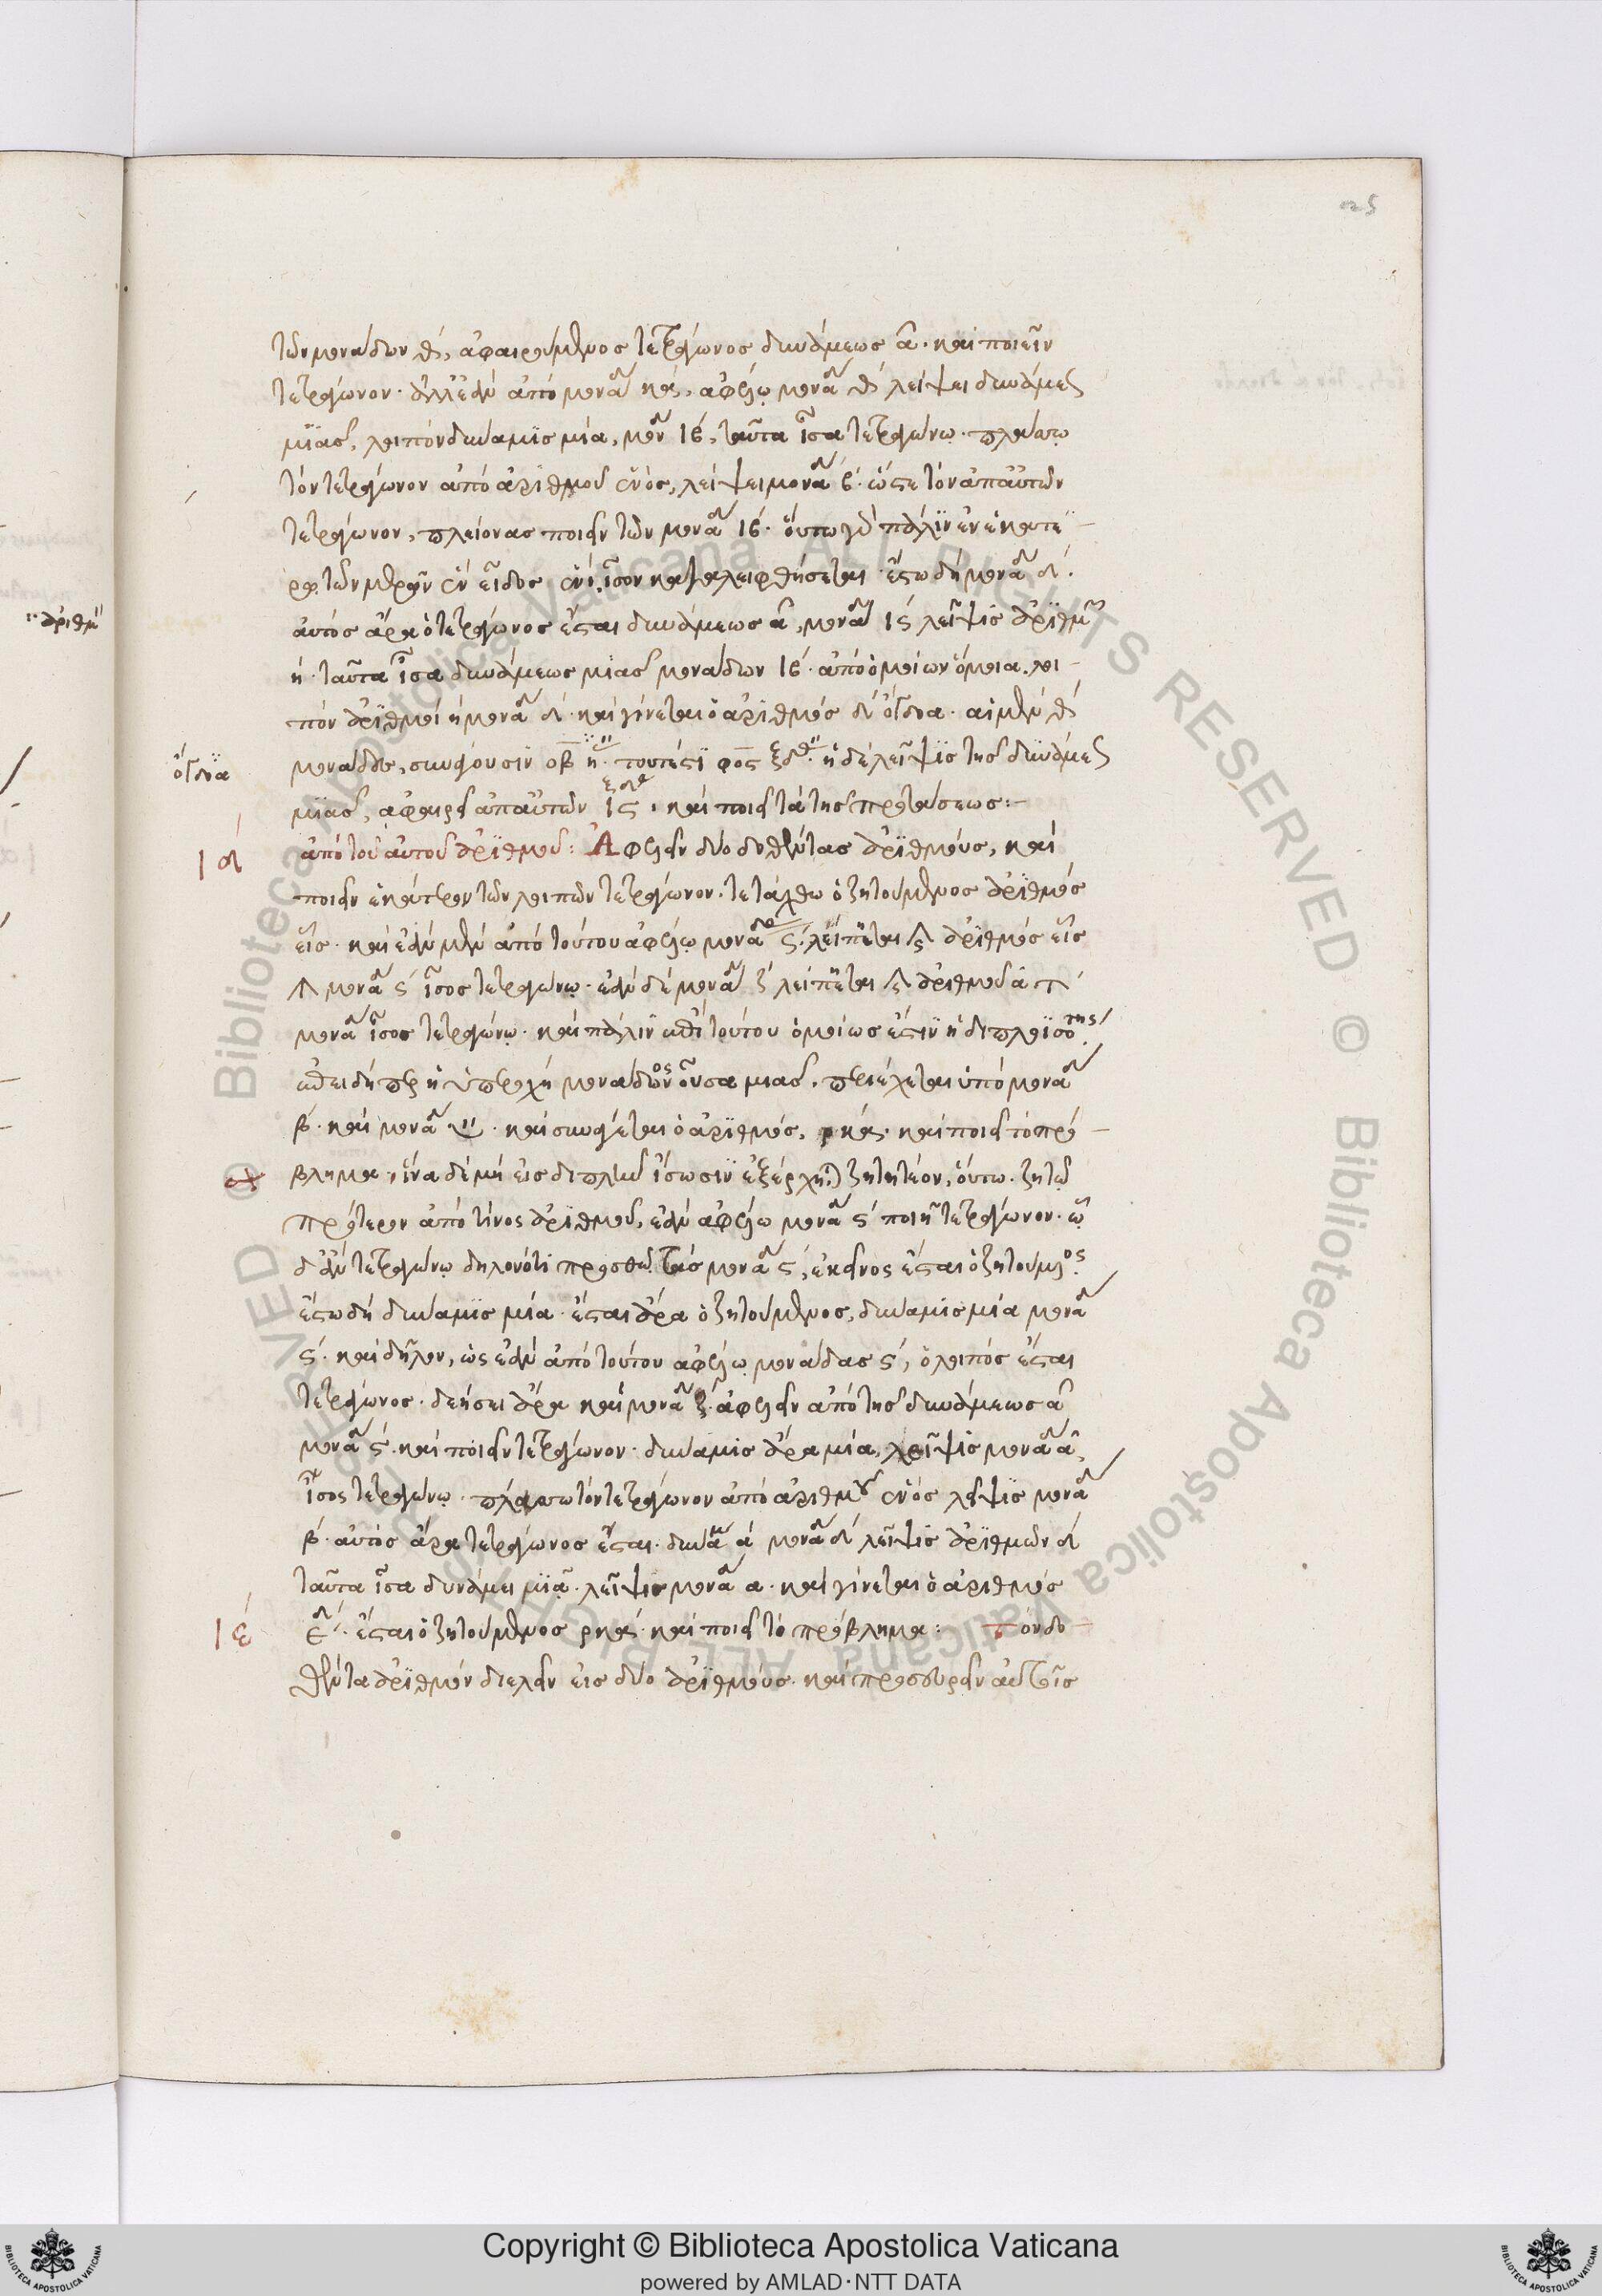 τῶν μονάδων θ, ἀφαιρούμενος τετράγωνος δυνάμεως α. καὶ ποιεῖν
τετράγωνον. ἀλλ' ἐὰν ἀπὸ μονα κα, ἀφέλω μονα θ λείψει δυνάμες
μϊᾶς, λοιπὸν δυναμϊς μία, μον ιβ, ταῦτα ἴσα τετραγώνῳ. πλάσσω
τὸν τετράγωνον ἀπὸ ἀριθμοῦ ἑνὸς, λείψει μονα δ. ὥστε τὸν ἀπ' αὐτῶν
τετράγωνον, πλείονας ποιεῖν τῶν μονα ιβ. οὕτω γὰρ πάλϊν ἐν ἑκατέ-
ρῳ τῶν μερῶν ἓν εἶδος ἑνὶ ἴσον καταλειφθήσεται. ἔστω δὴ μονα δ.
αὐτὸς ἄρα ὁ τετράγωνος ἔσται δυνάμεως α, μονα ις λεῖψις ἀρϊθμ
η. ταῦτα ἴσα δυνάμεως μιᾶς μονάδων ιβ. ἀπὸ ὁμοίων ὅμοια. λοι-
πὸν ἀρϊθμοὶ η μονα δ. καὶ γίνεται ὁ ἀριθμός δ ὄγδοα. αἱ μὲν θ
ὄγδοα
μονάδες, συνάγουσιν οβ η. τουτέστϊ φος ξδ. ἡ δὲ λεῖψϊς τῆς δϋνάμες
μϊᾶς, ἀφαιρεῖ ἀπ' αὐτῶν ις ξδ. καὶ ποιεῖ τὰ τῆς προτάσεως:-
ιδ
ἀπὸ τοῦ αὐτοῦ ἀρϊθμοῦ: Ἀφελεῖν δύο δοθέντας ἀρϊθμούς, καὶ
ποιεῖν ἑκάτερον τῶν λοιπῶν τετράγωνον. τετάχθω ὁ ζητούμενος ἀρϊθμός
εἷς. καὶ ἐὰν μὲν ἀπὸ τούτου ἀφέλω μονα ς, λείπεται ἀρϊθμός εἷς
μονα ς ἴσος τετραγώνῳ. ἐὰν δὲ μονα ζ λείπεται ἀριθμοῦ α
μονα ἴσος τετραγώνῳ. καὶ πάλϊν ἐπὶ τούτου ὁμοίως ἐστϊν ἡ διπλοϊσότης
ἐπειδήπερ ἡ ὑπεροχή μονάδος οὖσα μιᾶς. περιέχεται ὑπὸ μονα
β. καὶ μονα. καὶ συνάγεται ὁ ἀρϊθμός, ρκα. καὶ ποιεῖ τὸ πρό-
βλημα. ἵνα δὲ μὴ εἰς διπλῆν ἴσωσιν ἐξέρχη ζητητέον, οὕτω. ζητῶ
πρότερον ἀπὸ τίνος ἀρϊθμοῦ, ἐὰν ἀφέλω μονα ς ποιῆ τετράγωνον. ᾧ
δ' ἂν τετραγώνῳ δηλονότι προσθῶ τὰς μονα ς, ἐκεῖνος ἔσται ὁ ζητούμενος
ἔστω δὴ δυναμϊς μία. ἔσται ἄρα ὁ ζητούμενος, δυναμϊς μία μονα
ς. καὶ δῆλον, ὡς ἐὰν ἀπὸ τούτου ἀφέλω μονάδας ς, ὁ λοιπὸς ἔσται
τετράγωνος. δεήσει ἄρα καὶ μονα ζ ἀφελεῖν ἀπὸ τῆς δυνάμεως α
μονα ς. καὶ ποιεῖν τετράγωνον. δυναμις ἄρα μία, λεῖψϊς μονα α,
ἴσος τετραγώνῳ. πλάσσω τὸν τετράγωνον ἀπὸ ἀριθμοῦ ἑνὸς λεῖψϊς μονα
β. αὐτὸς ἄρα τετράγωνος ἔσται. δυνα α μονα δ λεῖψϊς ἀρϊθμῶν δ
ταῦτα ἴσα δυνάμει μϊᾷ. λεῖψις μονα α. καὶ γίνεται ὁ ἀριθμός
ιε
ε δ. ἔσται ὁ ζητούμενος ρκα. καὶ ποιεῖ τὸ πρόβλημα: Τὸν δο-
θέντα ἀρϊθμὸν διελεῖν εἰς δύο ἀρϊθμούς. καὶ προσευρεῖν αὐτοῖς
Copyright © Biblioteca Apostolica Vaticana
powered by AMLAD·NTT DATA